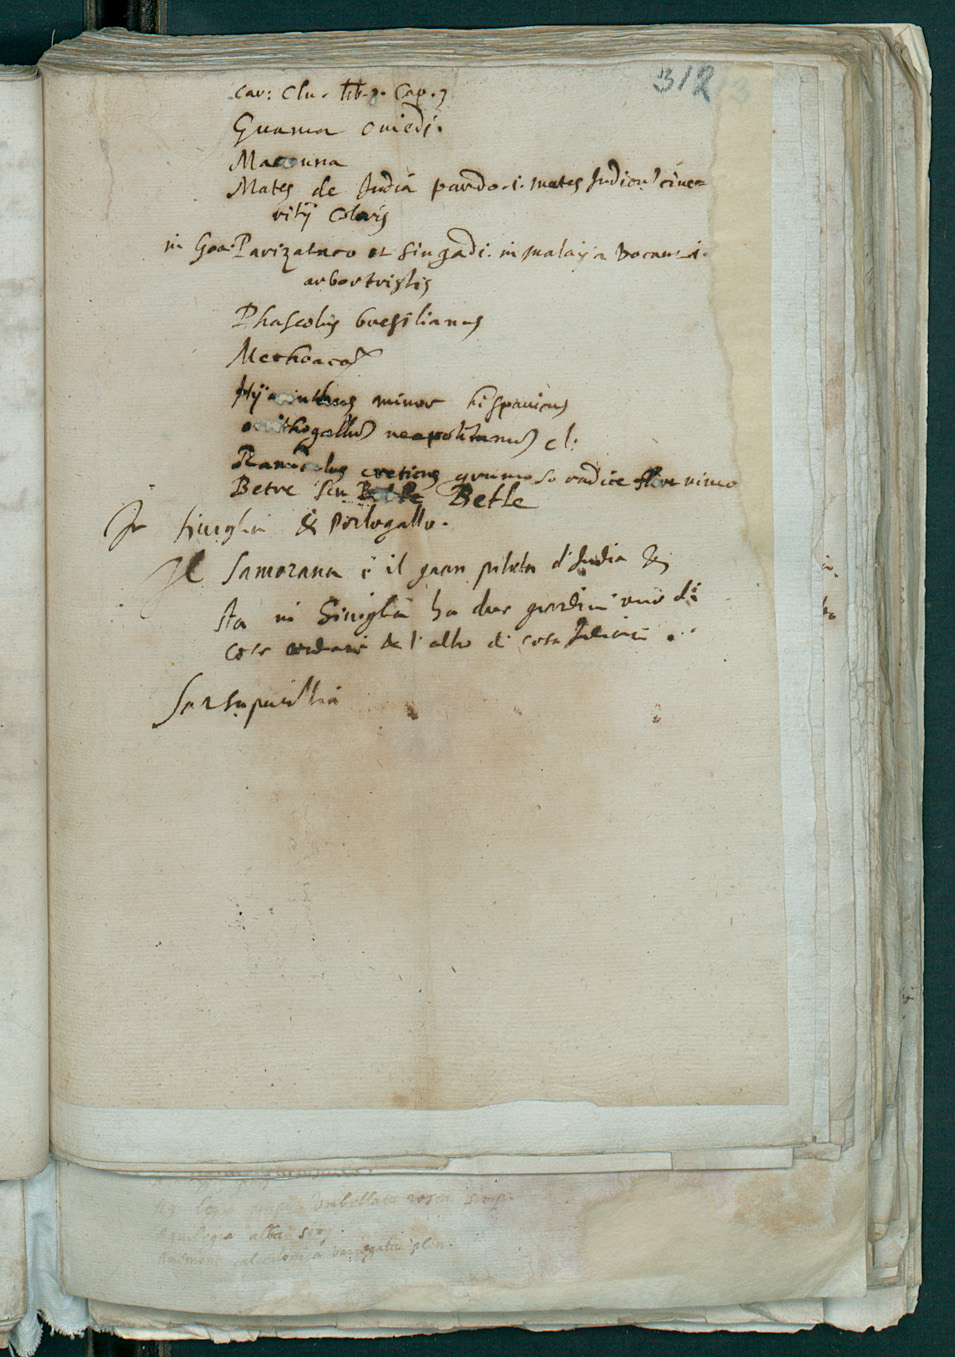 312
car: Clu. lib. 2. Cap. 3
Guama ouiedi.
Macouna
Mates de India pardo .i. mates Indicus cine-
ritij coloris
in Goa: Parizataco et Singadi. in malaya vocant .i.
arbor tristis
Phaseolus bresilianus
Mechoacan
Hyacinthus minor hispanicus
ornithogallus neapolitanus cl.
Ranunculus creticus grumoso radice flore niueo
Betre seu Betle Betle
In Siuiglia & Portogallo.
Il Samorana è il gran pilota d'India &
sta in Siuiglia ha due giardini uno di
cose ordinarie & l'altro di cose Indiane.
Sarsaparillia
umbellata rosea simp.
Aquilegia alba simp.
Anemone calcedonica variegata plen.